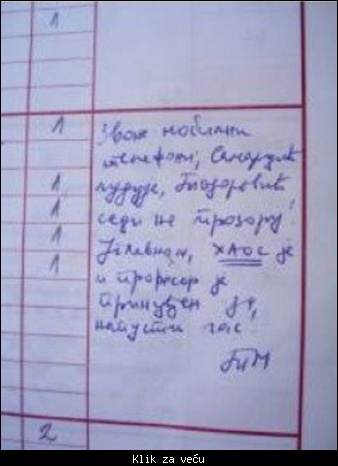 1
1
Звоне мобилни
телефони, Сенердић
лудује, Тиодоровић
1
1
седи на прозору!
1
Углавном, ХАОС је
1
и професор је
принуђен да
напусти час.
2
Klik za veću